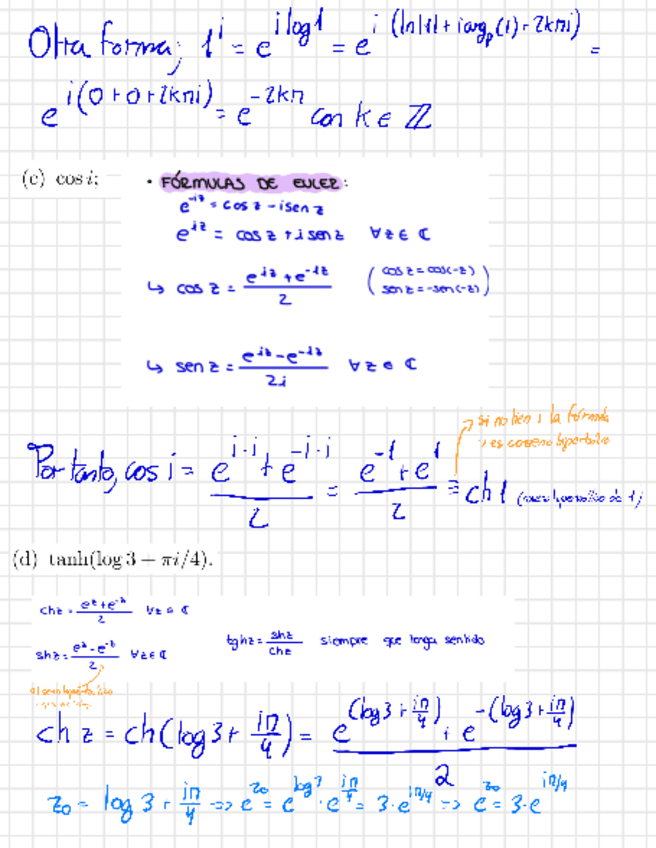 Otra forma; 1^i = e^{i log 1} = e^{i (ln|1| + i arg_p(1) + 2kπi)} =
e^{i(0+0+2kπi)} = e^{-2kπ} con k ∈ ℤ
(c) cos i;
• FÓRMULAS DE EULER:
e^{-iz} = cos z - i sen z
e^{iz} = cos z + i sen z ∀z ∈ ℂ
↳ cos z = (e^{iz} + e^{-iz})/2 (cos z = cos(-z)
sen z = -sen(-z))
↳ sen z = (e^{iz} - e^{-iz})/2i ∀z ∈ ℂ
si no tien i la fórmula
es coseno hiperbólico
Por tanto, cos i = (e^{i·i} + e^{-i·i})/2 = (e^{-1} + e^{1})/2 = ch 1 (coseno hiperbólico de 1)
(d) tanh(log 3 + πi/4).
ch z = (e^z + e^{-z})/2 ∀z ∈ ℂ
sh z = (e^z - e^{-z})/2 ∀z ∈ ℂ tgh z = sh z/ch z siempre que tenga sentido
ch z = ch(log 3 + iπ/4) = (e^{(log 3 + iπ/4)} + e^{-(log 3 + iπ/4)})/2
z₀ = log 3 + iπ/4 => e^{z₀} = e^{log 3} · e^{iπ/4} = 3·e^{iπ/4} => e^{z₀} = 3·e^{iπ/4}